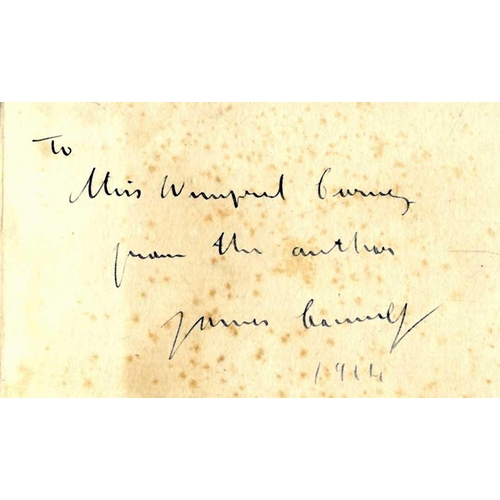 To
Miss Winifred Carney
from the author
James Connolly
1914